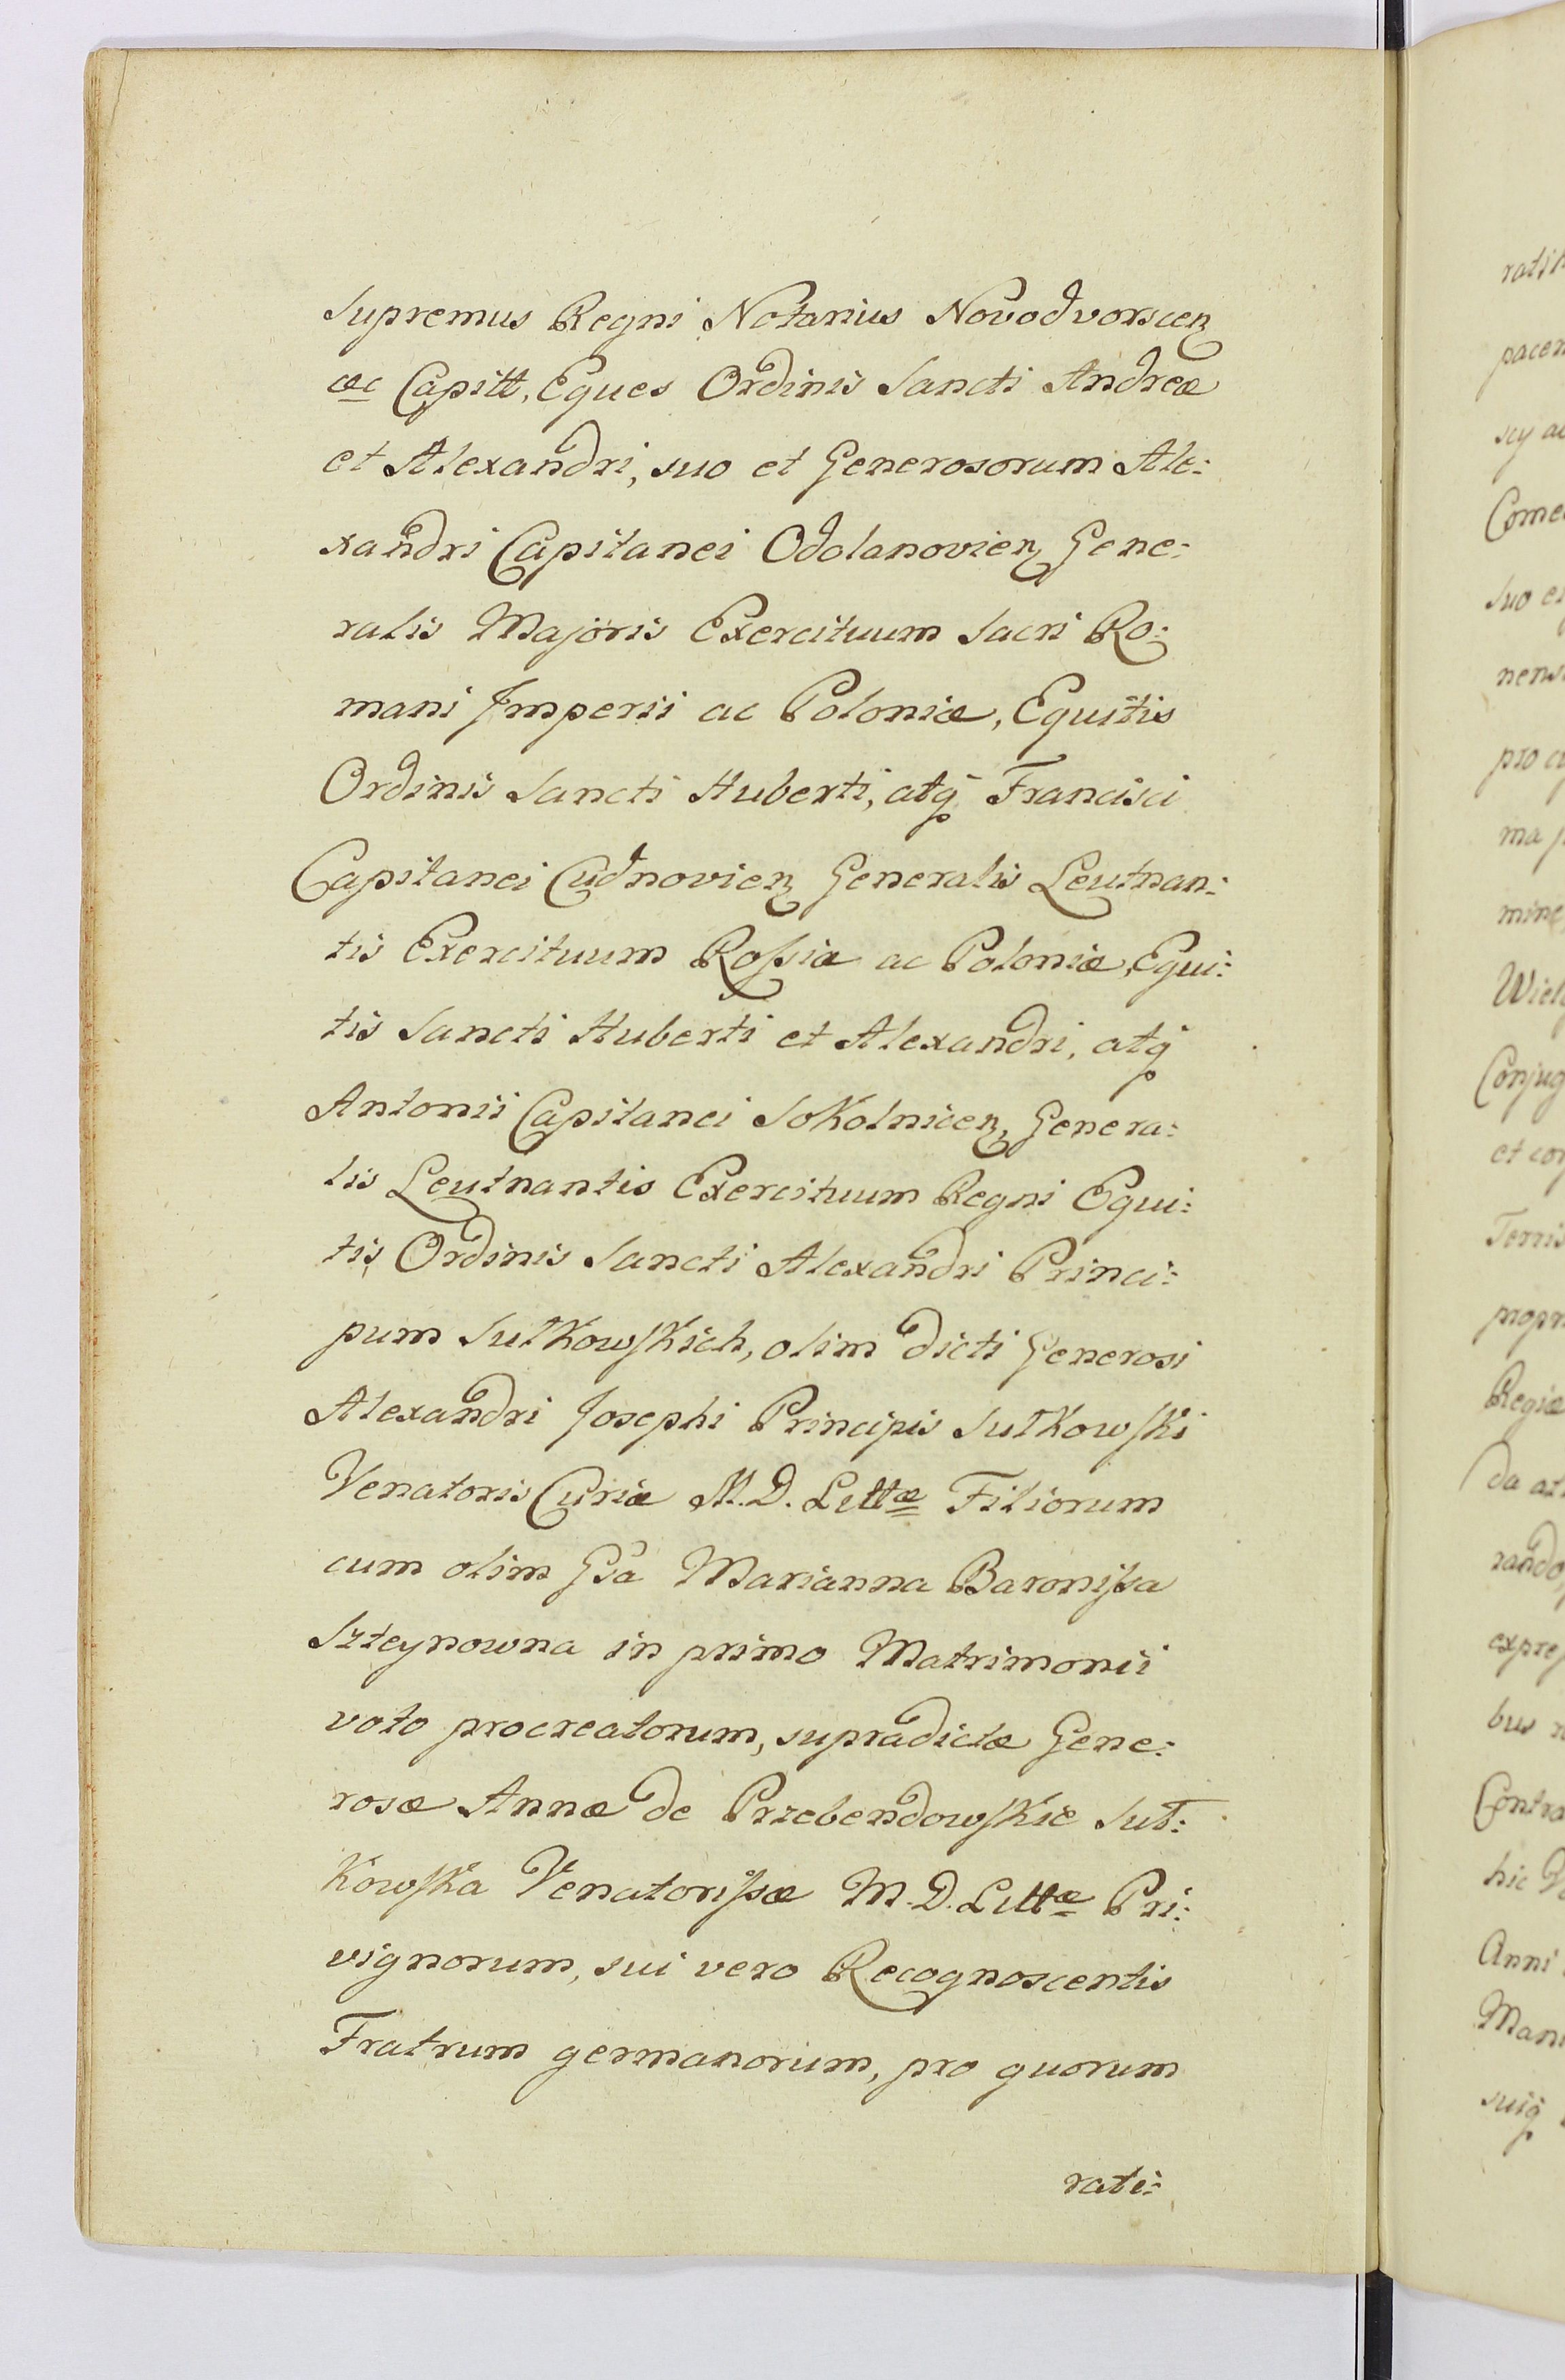 Supremus Regni Notarius Novodvorscen
ac Capitt, Eques Ordinis Sancti Andreæ
et Alexandri, suo et Generosorum Ale:
xandri Capitanei Odolanovien Gene:
ralis Majoris Exercituum Sacri Ro:
mani Imperii ac Poloniæ, Equitis
Ordinis Sancti Huberti, atq Francisci
Capitanei Cudnovien Generalis Leutnan:
tis Exercituum Roſsiæ ac Poloniæ, Equi:
tis Sancti Huberti et Alexandri, atq
Antonii Capitanei Sokolnicen, Genera:
lis Leutnantis Exercituum Regni Equi:
tis Ordinis Sancti Alexandri Princi:
pum Sułkowſkich, olim dicti Generosi
Alexandri Josephi Principis Sułkowſki
Venatoris Curiæ M. D. Littæ Filiorum
cum olim Gsa Marianna Baroniſsa
Szteynowna in primo Matrimonii
voto procreatorum, supradictæ Gene:
rosæ Annæ de Przebendowſkie Suł:
kowſka Venatoriſsæ M. D. Littæ Pri:
vignorum, sui vero Recognoscentis
Fratrum germanorum, pro quorum
rati:
pacen
Come
suo et
pro
mine
et con
Terris
Regiæ
bus
Contra
hic
Anni
suiq